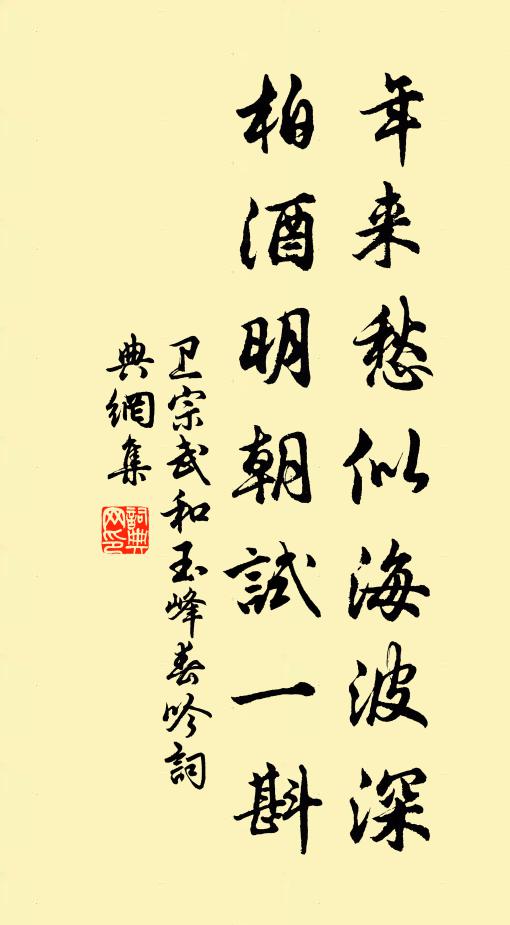 年来愁似海波深
柏酒明朝試一斟
卫宗武和玉峰春吟詞
典網集
詞典
网印